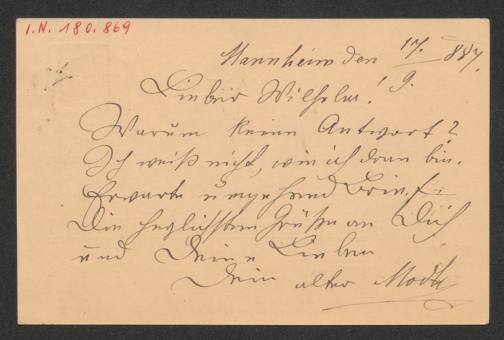 I.N. 180.869
Mannheim den 17./9. 887.
Lieber Wilhelm!
Warum keine Antwort?
Ich weiß nicht, wie ich dran bin.
Erwarte umgehend Brief.
Die herzlichsten Grüße an Dich
und Deine Lieben
Dein alter Mottl